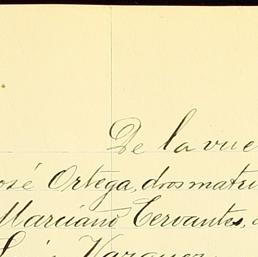 De la vue
osé Ortega, dos matri
Marciano Cervantes,
Vazquez